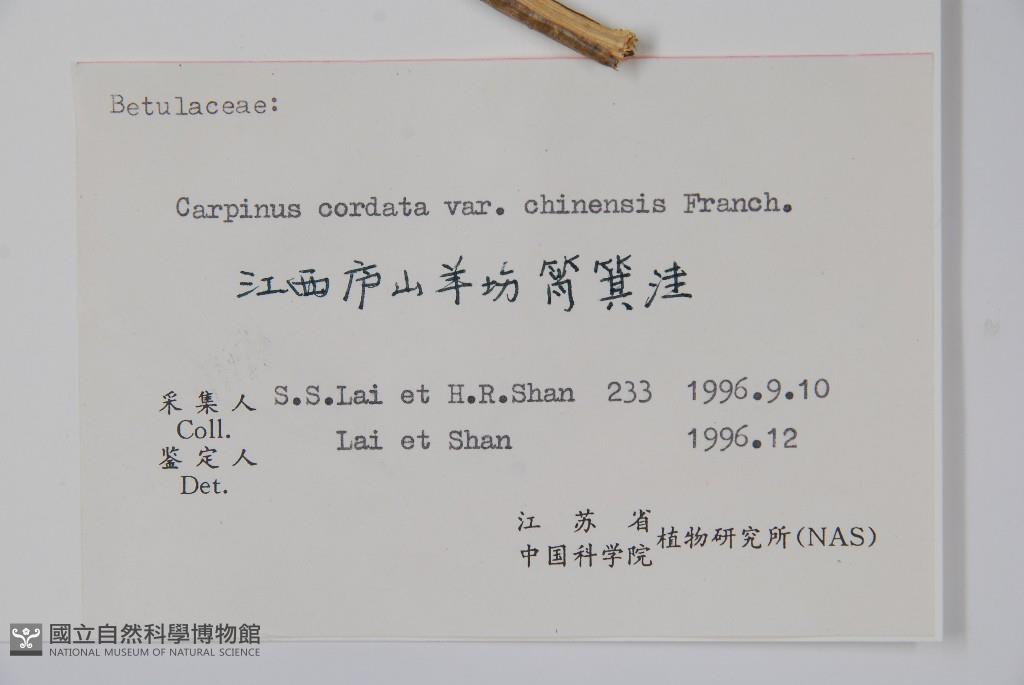 Betulaceae:
Carpinus cordata var. chinensis Franch.
江西庐山羊坊筲箕洼
采集人 S.S.Lai et H.R.Shan 233 1996.9.10
Coll.
鉴定人 Lai et Shan 1996.12
Det.
江苏省
中国科学院 植物研究所(NAS)
國立自然科學博物館
NATIONAL MUSEUM OF NATURAL SCIENCE